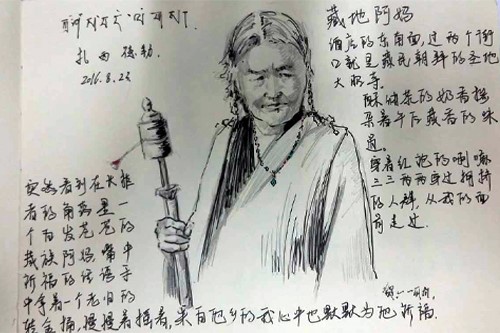 扎西德勒
2016.8.23
藏地阿妈
酒店的东南面,过两个街
口就是藏民朝拜的圣地
大昭寺.
酥油茶的奶香掺
杂着午后藏香的味
道.
穿着红袍的喇嘛
三三两两穿过拥挤
的人群,从我的面
前走过.
突然看到在大
者的角落里一
个白发苍苍的
藏族阿妈,嘴中
祈福的话语手
中拿着一个老旧的
转金桶,慢慢着摇着,来自他乡的我心中也默默为她祈福.